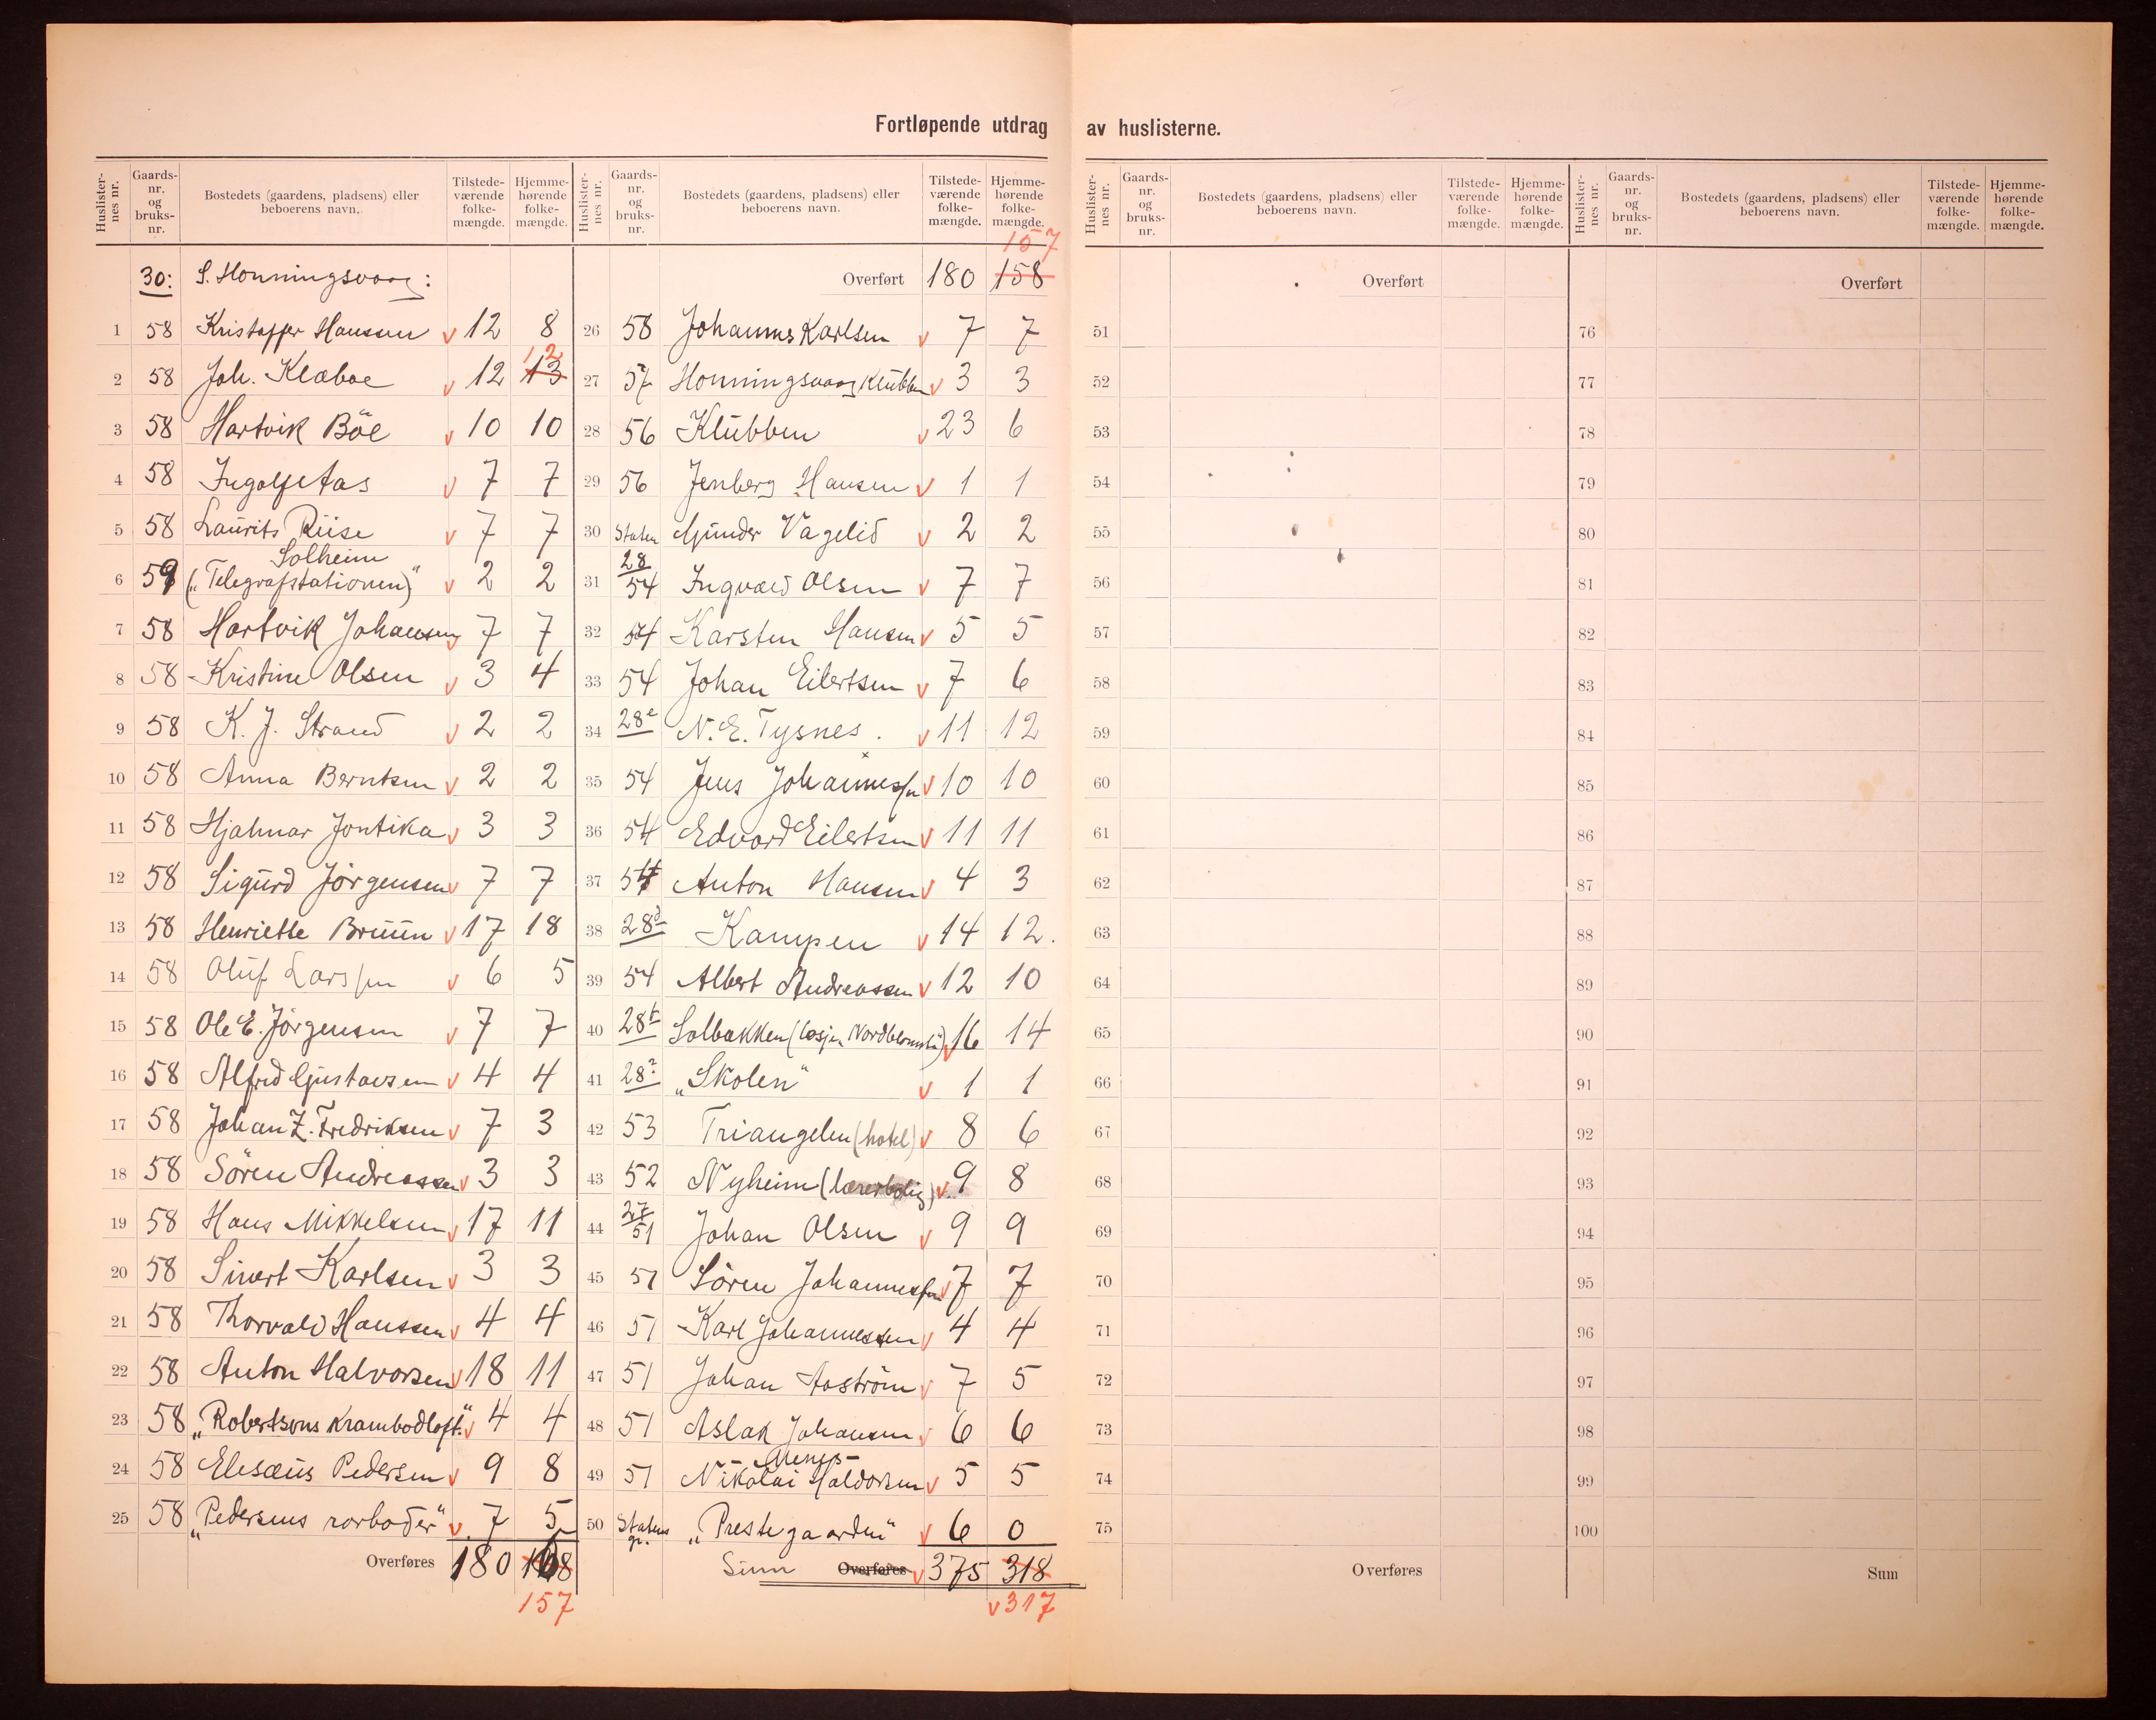 Fortløpende utdrag av huslisterne.
Huslisternes nr. Gaards-nr. og bruks-nr. Bostedets (gaardens, pladsens) eller beboerens navn. Tilstedeværende folkemængde. Hjemmehørende folkemængde.
30: S. Honningsvaag:
1 58 Kristoffer Hanssen v 12 8
2 58 Joh. Klæboe v 12 13 12
3 58 Hartvik Böe v 10 10
4 58 Ingolf Aas v 7 7
5 58 Laurits Riise v 7 7
Solheim
6 59 („Telegrafstationen)" v 2 2
7 58 Hartvik Johansen v 7 7
8 58 Kristine Olsen v 3 4
9 58 K. J. Strand v 2 2
10 58 Anna Berntsen v 2 2
11 58 Hjalmar Jontika v 3 3
12 58 Sigurd Jörgensen v 7 7
13 58 Henriette Bruun v 17 18
14 58 Oluf Larssen v 6 5
15 58 Ole E. Jörgensen v 7 7
16 58 Alfred Gustavsen v 4 4
17 58 Johan Z. Fredriksen v 7 3
18 58 Sören Andreassen v 3 3
19 58 Hans Mikkelsen v 17 11
20 58 Sivert Karlsen v 3 3
21 58 Thorvald Hanssen v 4 4
22 58 Anton Halvorsen v 18 11
23 58 „Robertsons Krambodloft." v 4 4
24 58 Elesæus Pedersen v 9 8
25 58 „Pedersens rorboder" v 7 5
Overføres 180 158
157
Huslisternes nr. Gaards-nr. og bruks-nr. Bostedets (gaardens, pladsens) eller beboerens navn. Tilstedeværende folkemængde. Hjemmehørende folkemængde.
157
Overført 180 158
26 58 Johannes Karlsen v 7 7
27 57 Honningsvaag Klubben v 3 3
28 56 Klubben v 23 6
29 56 Jenberg Hansen v 1 1
30 Staten Gunder Vagelid v 2 2
31 28 54 Ingvald Olsen v 7 7
32 54 Karsten Hansen v 5 5
33 54 Johan Eilertsen v 7 6
34 28e N. E. Tysnes. v 11 12
35 54 Jens Johannessen v 10 10
36 54 Edvard Eilertsen v 11 11
37 54 Anton Hansen v 4 3
38 28d Kampen v 14 12.
39 54 Albert Andreassen v 12 10
40 28 Solbakken (losjen v 16 14
41 28 „Skolen" v 1 1
42 53 Triangelen (hotel) v 8 6
43 52 Nyheim (lærerbolig) v. 9 8
44 27 51 Johan Olsen v 9 9
45 51 Sören Johannessen v 7 7
46 51 Karl Johannessen v 4 4
47 51 Johan Aaström v 7 5
48 51 Aslak Johansen v 6 6
49 51 Nikolai Haldorsen v 5 5
50 Statens gr. „Prestegaarden" v 6 0
Sum Overføres v 375 318
v 317
Huslisternes nr. Gaards-nr. og bruks-nr. Bostedets (gaardens, pladsens) eller beboerens navn. Tilstedeværende folkemængde. Hjemmehørende folkemængde.
Overført
51
52
53
54
55
56
57
58
59
60
61
62
63
64
65
66
67
68
69
70
71
72
73
74
75
Overføres
Huslisternes nr. Gaards-nr. og bruks-nr. Bostedets (gaardens, pladsens) eller beboerens navn. Tilstedeværende folkemængde. Hjemmehørende folkemængde.
Overført
76
77
78
79
80
81
82
83
84
85
86
87
88
89
90
91
92
93
94
95
96
97
98
99
100
Sum